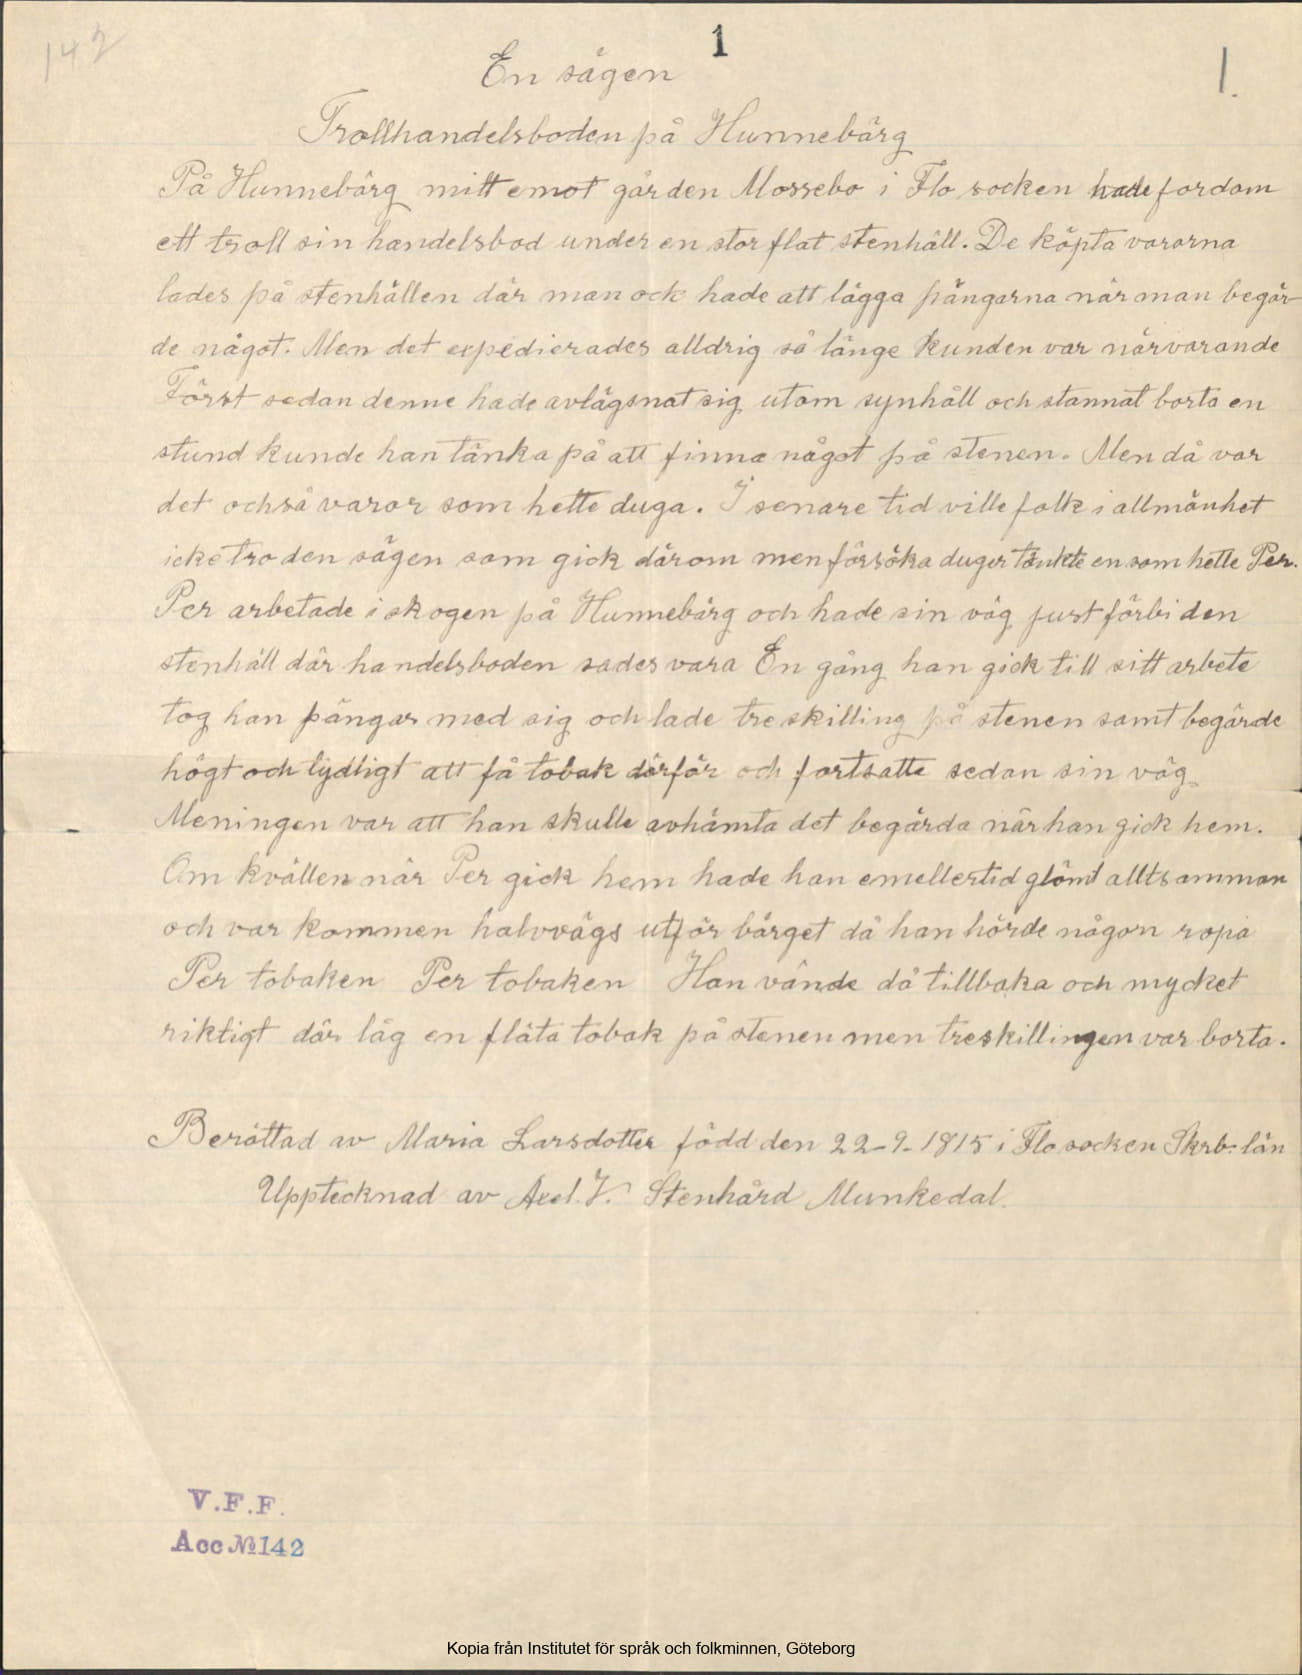 142
1
1.
En sägen
Trollhandelsboden på Hunnebärg
På Hunnebärg mitt emot gården Mossebo i Flo socken hade fordom
ett troll sin handelsbod under en stor flat stenhäll. De köpta vararna
lades på stenhällen där man ock hade att lägga pängarna när man begär-
de något. Men det expedierades alldrig så länge kunden var närvarande
Först sedan denne hade avlägsnat sig utom synhåll och stannat borta en
stund kunde han tänka på att finna något på stenen. Men då var
det ochså varor som hette duga. I senare tid ville folk i allmänhet
icke tro den sägen som gick därom men försöka duger tänkte en som hette Per.
Per arbetade i skogen på Hunnebärg och hade sin väg just förbi den
stenhäll där handelsboden sades vara En gång han gick till sitt arbete
tog han pängar med sig och lade treskilling på stenen samt begärde
högt och tydligt att få tobak därför och fortsatte sedan sin väg
Meningen var att han skulle avhämta det begärda när han gick hem.
Om kvällen när Per gick hem hade han emellertid glömt alltsamman
och var kommen halvvägs utför bärget då han hörde någon ropa
Per tobaken Per tobaken Han vände då tillbaka och mycket
riktigt där låg en fläta tobak på stenen men treskillingen var borta.
Berättad av Maria Larsdotter född den 22-9-1815 i Flo socken Skrb. län
Upptecknad av Axel. V. Stenhård Munkedal.
V.F.F.
Acc № 142
Kopia från Institutet för språk och folkminnen, Göteborg